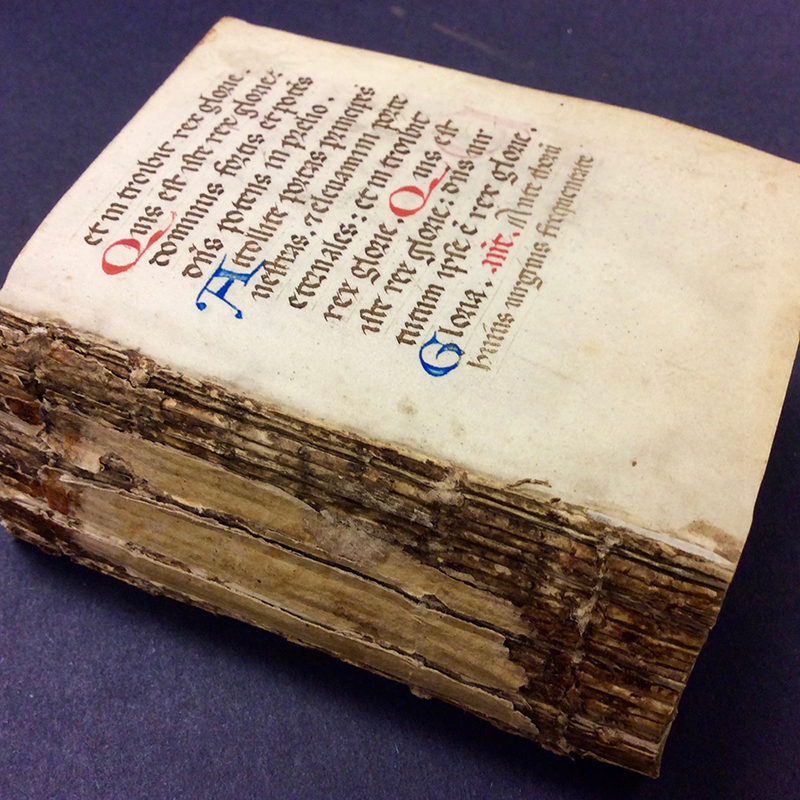 et in troibit rex glorie.
Quis est iste rex glorie:
dominus fortis et potens
dn̄s potens in prelio.
Attollite portas principes
uestras. ⁊ eleuamini porte
eternales: et in troibit
rex glorie. Quis est
iste rex glorie: dn̄s uir
tutum ipse ē rex glorie.
Gloria. añ.
uirginis frequentate